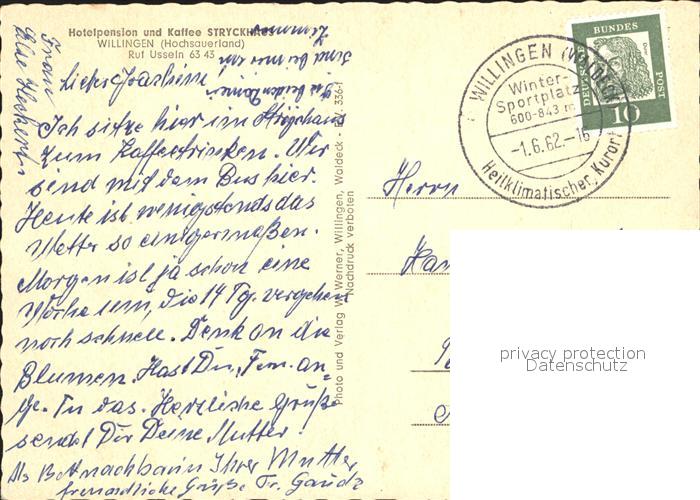 Hotelpension und Kaffee STRYCKHAUS
WILLINGEN (Hochsauerland)
Ruf Usseln 63 43
Lieber Joachim!
Ich sitze hier im Strykhaus
zum Kaffeetrinken. Wir
sind mit dem Bus hier.
Heute ist wenigstens das
Wetter so einigermaßen.
Morgen ist ja schon eine
Woche um, die 14 Tg. vergehen
noch schnell. Denk an die
Blumen. Hast Du, Turn. an-
Tu das. Herzliche Grüße
sendet Dir Deine Mutter.
Als Bettnachbarin Ihrer Mutter
freundliche Grüße Fr.
Frau
Else
Die beiden Damen
sind bei mir im
Zimmer
Photo und Verlag W. Werner, Willingen, Waldeck - 336-1
Nachdruck verboten
WILLINGEN (WALDECK)
Winter-
Sportplatz
600-843 m
-1.6.62.-16
Heilklimatischer Kurort
DEUTSCHE BUNDES POST
10
Herrn
privacy protection
Datenschutz